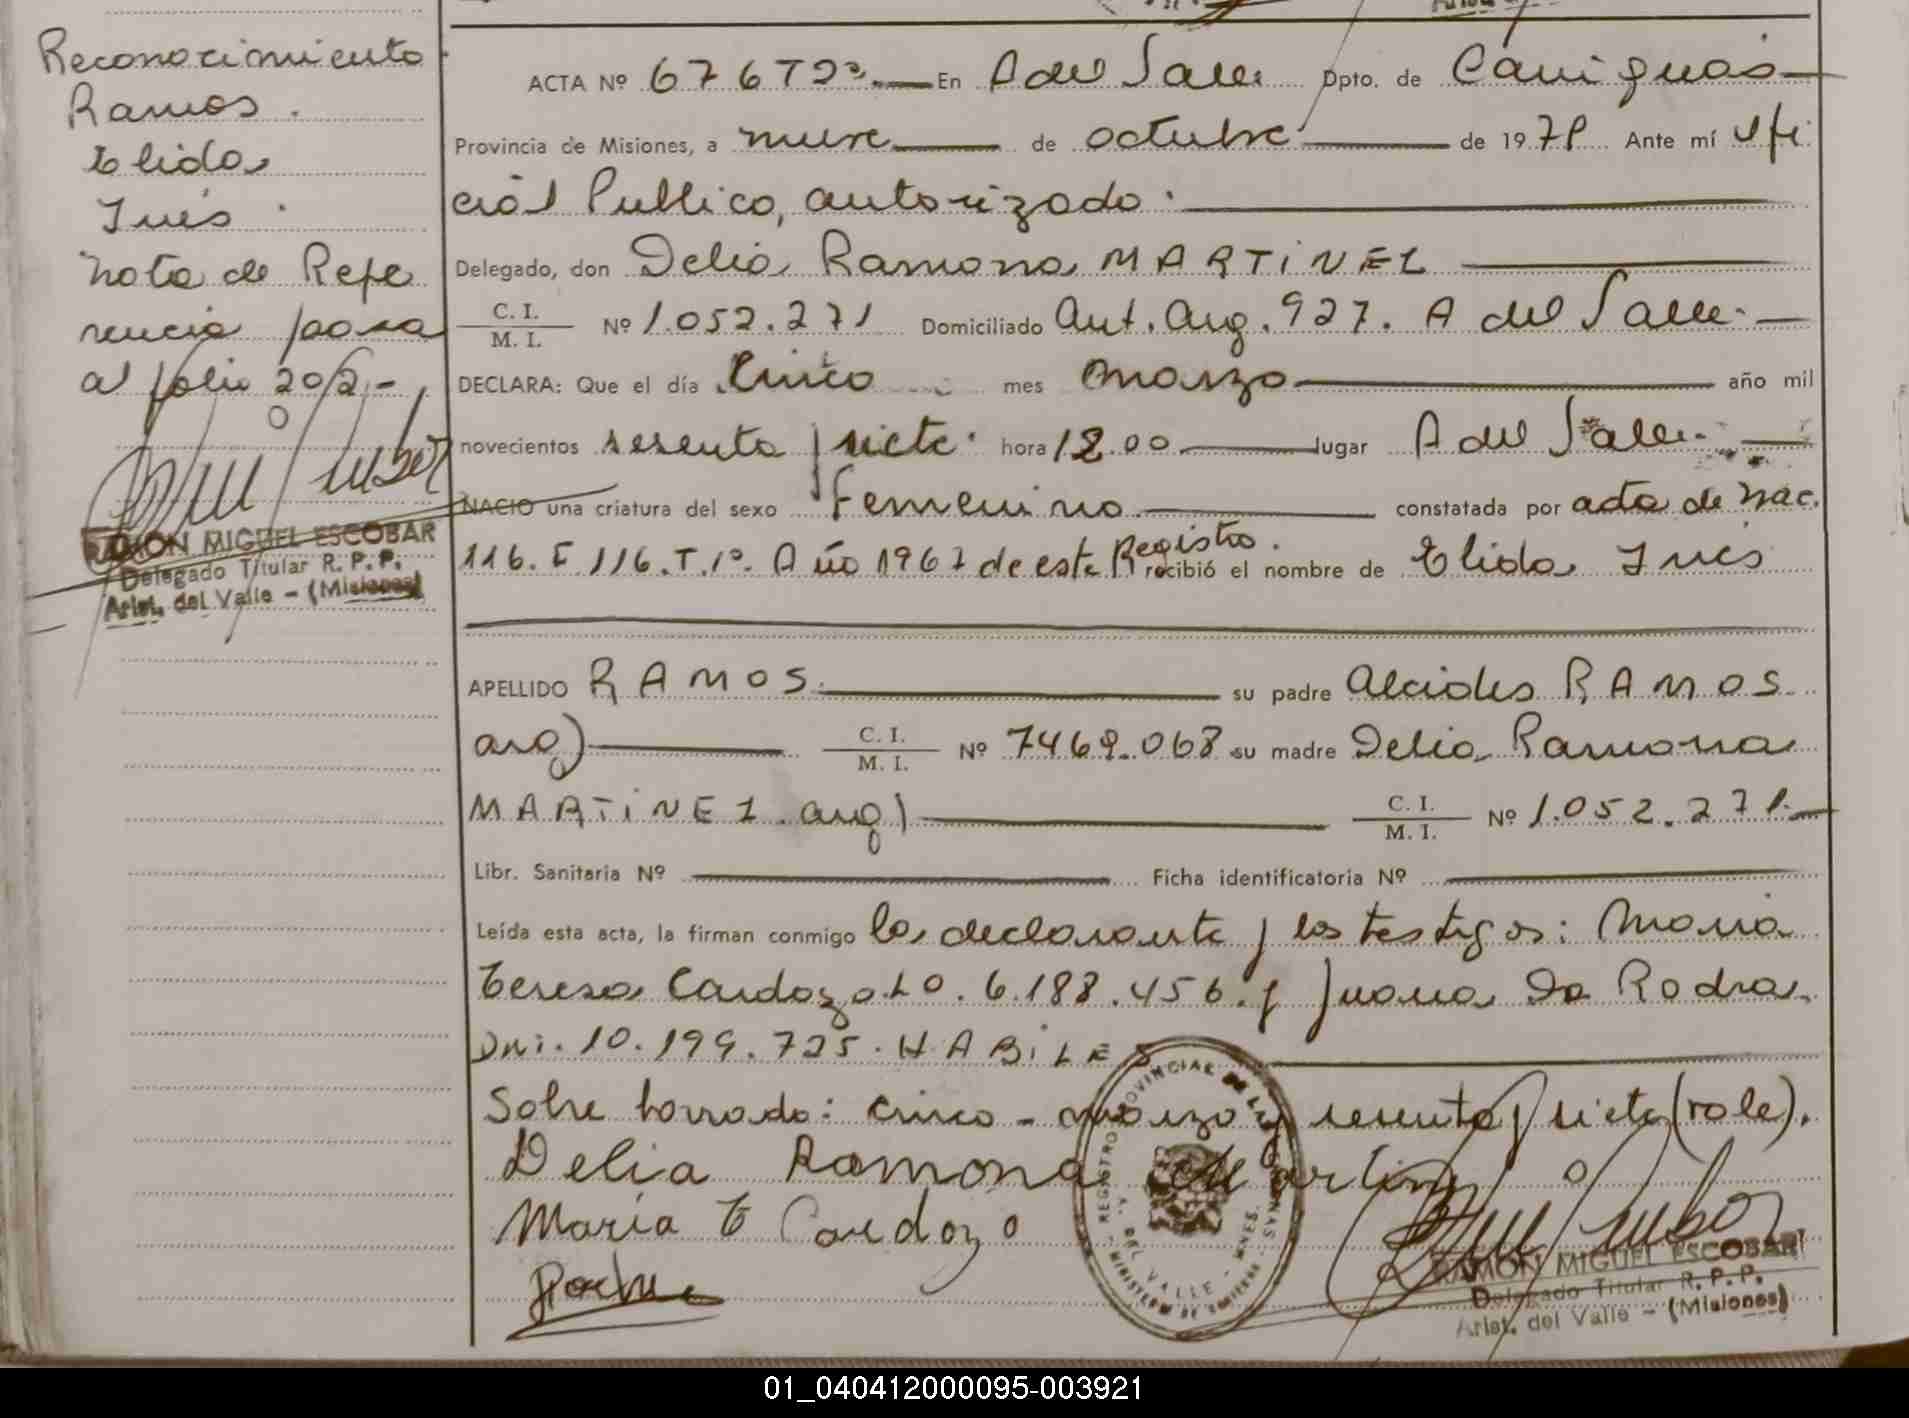 Reconocimiento
Ramos.
Elida
Inés.
Nota de Refe
rencia pasa
al folio 202-
RAMON MIGUEL ESCOBAR
Delegado Titular R. P. P.
Arist. del Valle - (Misiones)
ACTA Nº 676 T2º. En A del Valle Dpto. de Cainguás
Provincia de Misiones, a nueve de octubre de 1978 Ante mí Ofi
cial Publico, autorizado.
Delegado, don Delia Ramona MARTINEZ
C. I. / M. I. Nº 1.052.271 Domiciliado Ant. Arg. 927. A del Valle.
DECLARA: Que el día cinco mes marzo año mil
novecientos sesenta y siete. hora 12.00 lugar A del Valle.
NACIO una criatura del sexo Femenino constatada por acta de Nac.
116. F 116. T. 1º. Año 1967 de este Registro. recibió el nombre de Elida Inés
APELLIDO RAMOS su padre Alcides RAMOS
arg) C. I. / M. I. Nº 7469.068 su madre Delia Ramona
MARTINEZ. arg) C. I. / M. I. Nº 1.052.271.
Libr. Sanitaria Nº Ficha identificatoria Nº
Leída esta acta, la firman conmigo la declarante y los testigos: Maria
Teresa Cardozo. LC. 6.188.456. y Juana Da Rocha.
Dni. 10.199.725. HABILES
Sobre borrado: cinco - marzo y sesenta y siete (vale).
Delia Ramona Martinez
María T Cardozo
REGISTRO PROVINCIAL DE LAS PERSONAS
DEL VALLE - MNES.
MINISTERIO DE GOBIERNO
RAMON MIGUEL ESCOBAR
Delegado Titular R. P. P.
Arist. del Valle - (Misiones)
01_040412000095-003921